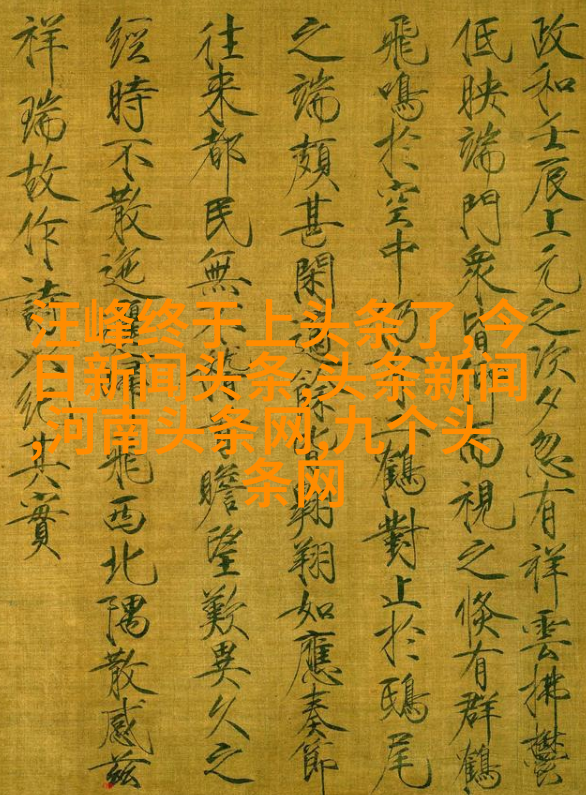 政和壬辰上元之次夕忽有祥雲拂鬱
低映端門眾皆而視之倏有群鶴
飛鳴於空中鶴對止於鴟尾
之端頗甚閑適餘皆翱翔如應奏節
往來都民無瞻望歎異久之
經時不散迤邐歸飛西北隅散感茲
祥瑞故作詩以紀其實
汪峰终于上头条了,今
日新闻头条,头条新闻
,河南头条网,九个头
条网